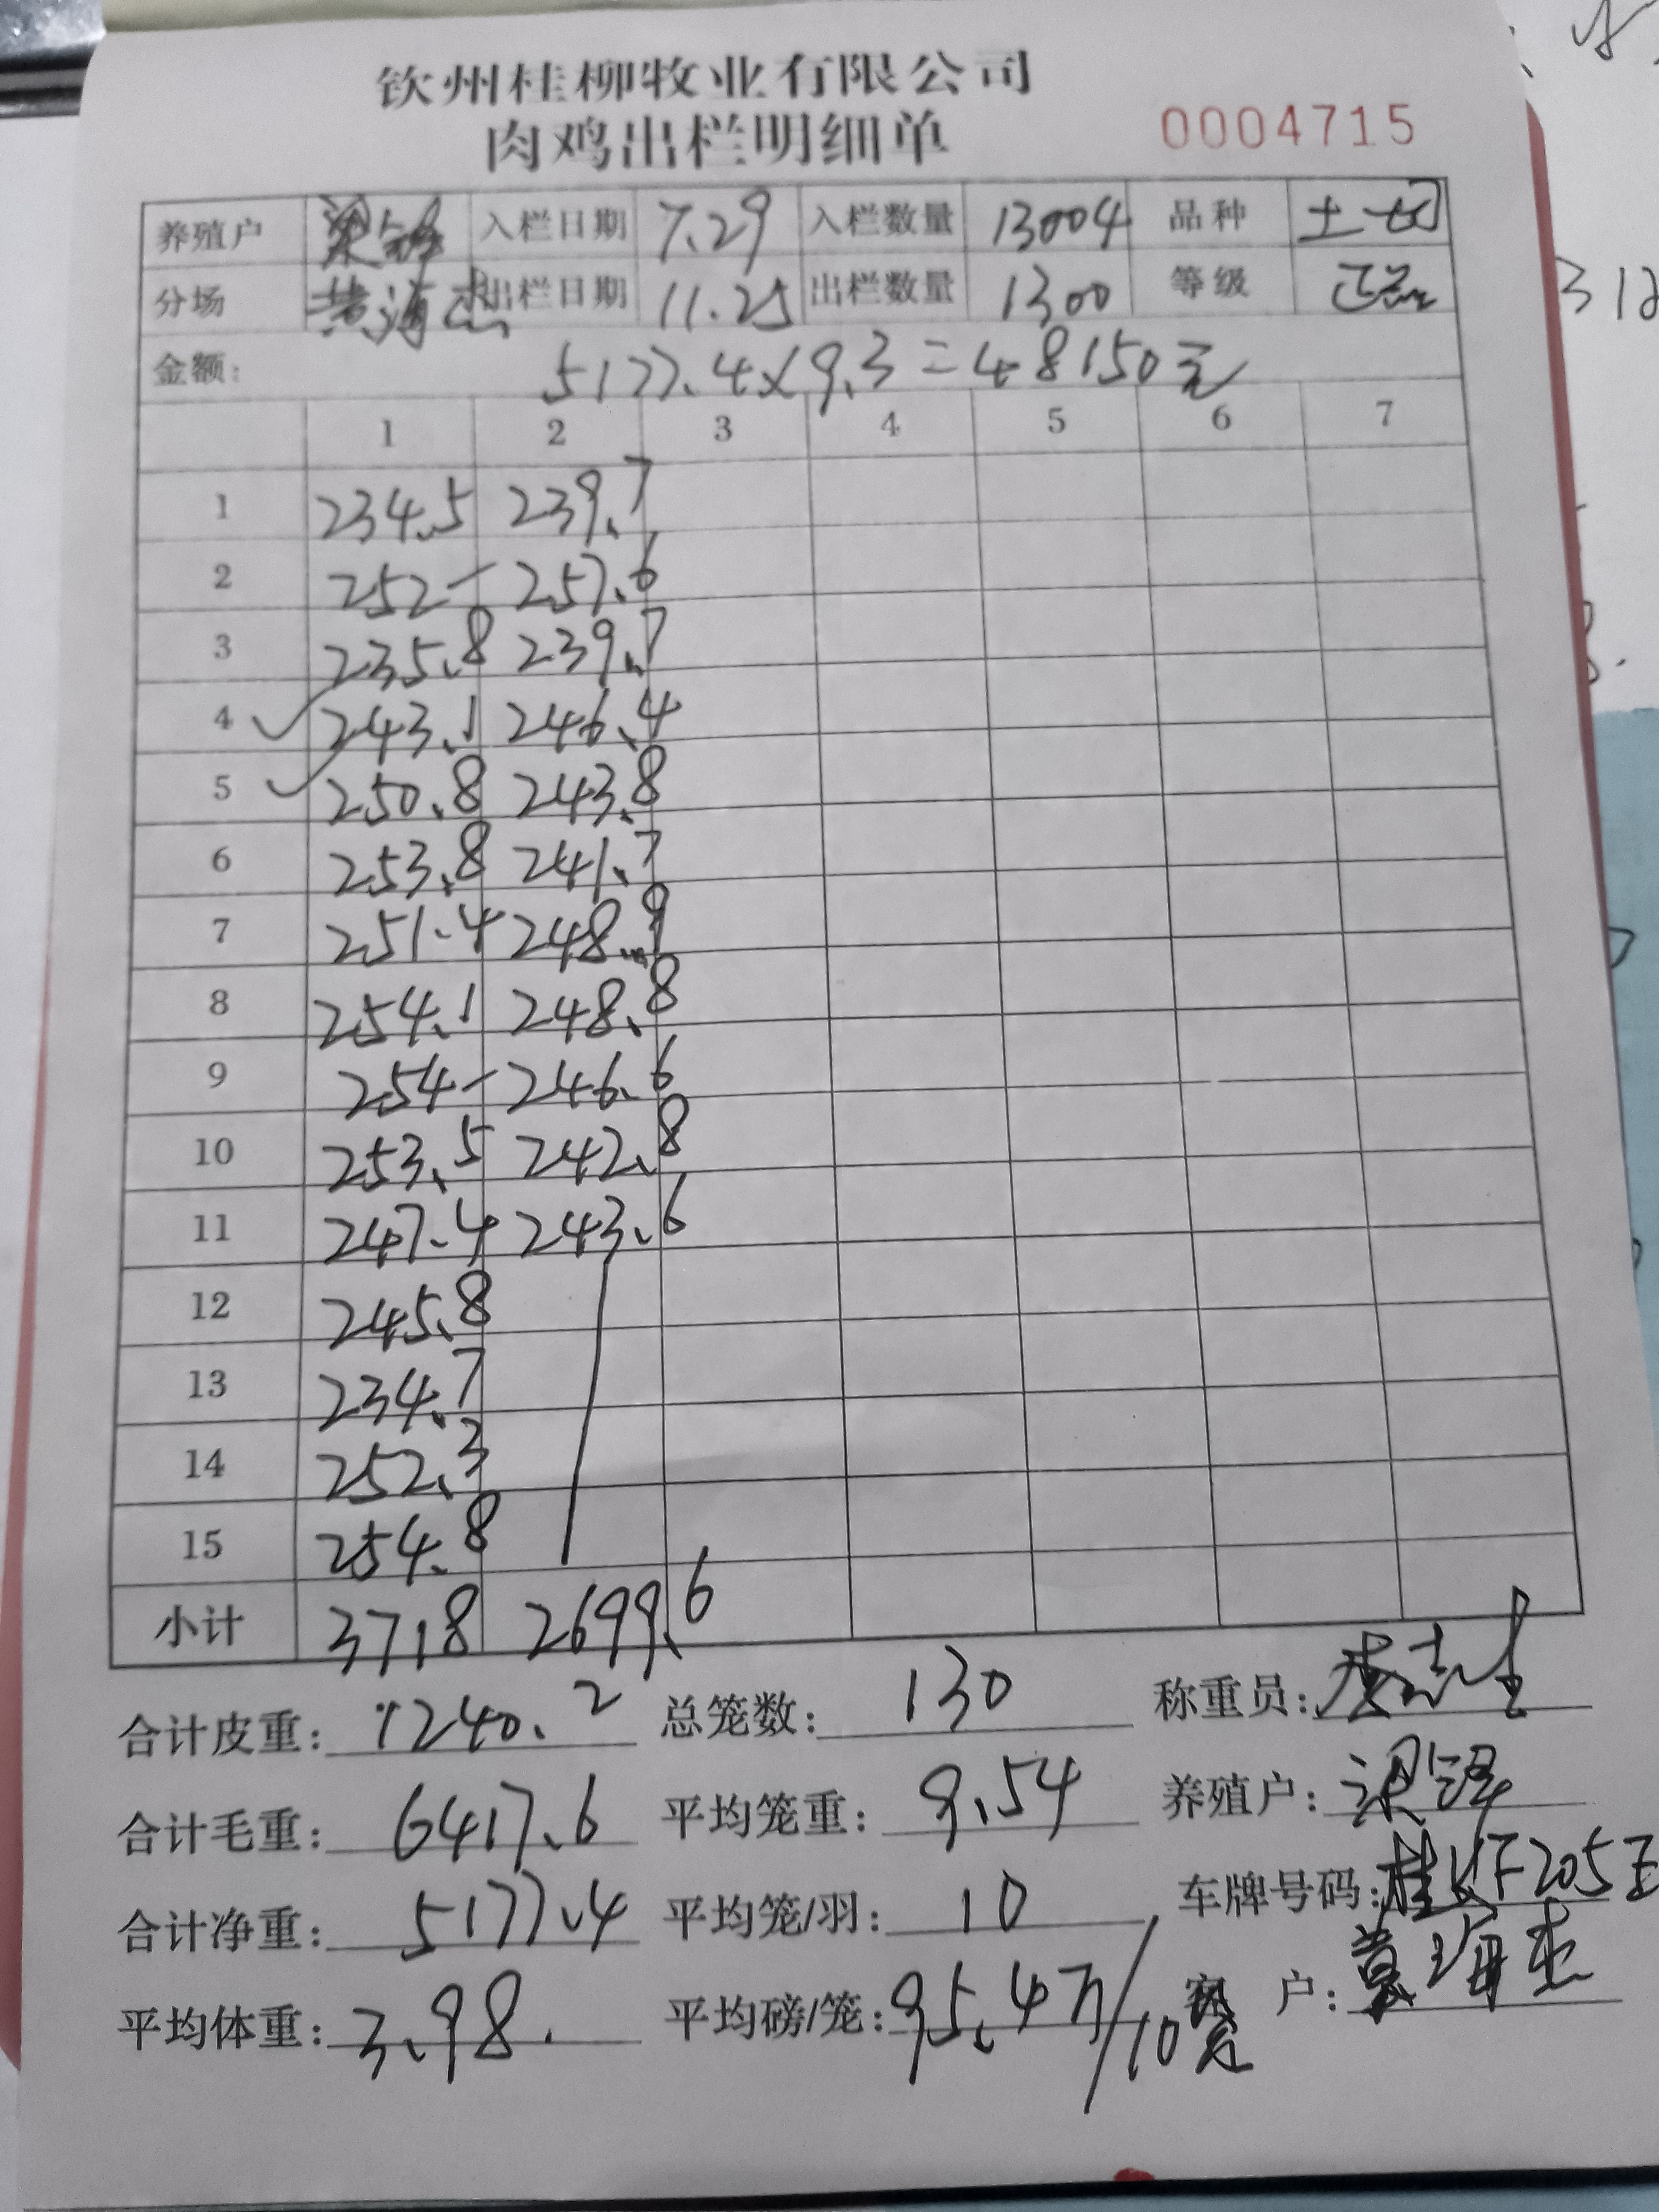 钦州桂柳牧业有限公司
肉鸡出栏明细单 0004715
养殖户 入栏日期 7.29 入栏数量 13004 品种 土
分场 黄海杰 出栏日期 11.25 出栏数量 1300 等级 正品
金额: 5177.4×9.3=48150元
1 2 3 4 5 6 7
1 234.5 239.7
2 252- 257.6
3 235.8 239.7
4 243.1 246.4
5 250.8 243.8
6 253.8 241.7
7 251.4 248.9
8 254.1 248.8
9 254- 246.6
10 253.5 242.8
11 247.4 243.6
12 245.8
13 234.7
14 252.3
15 254.8
小计 3718 2699.6
合计皮重: 1240.2 总笼数: 130 称重员:
合计毛重: 6417.6 平均笼重: 9.54 养殖户: 梁
合计净重: 5177.4 平均笼/羽: 10 车牌号码: 桂KF205
平均体重: 3.98. 平均磅/笼: 95.4斤/10笼 客户: 黄海杰